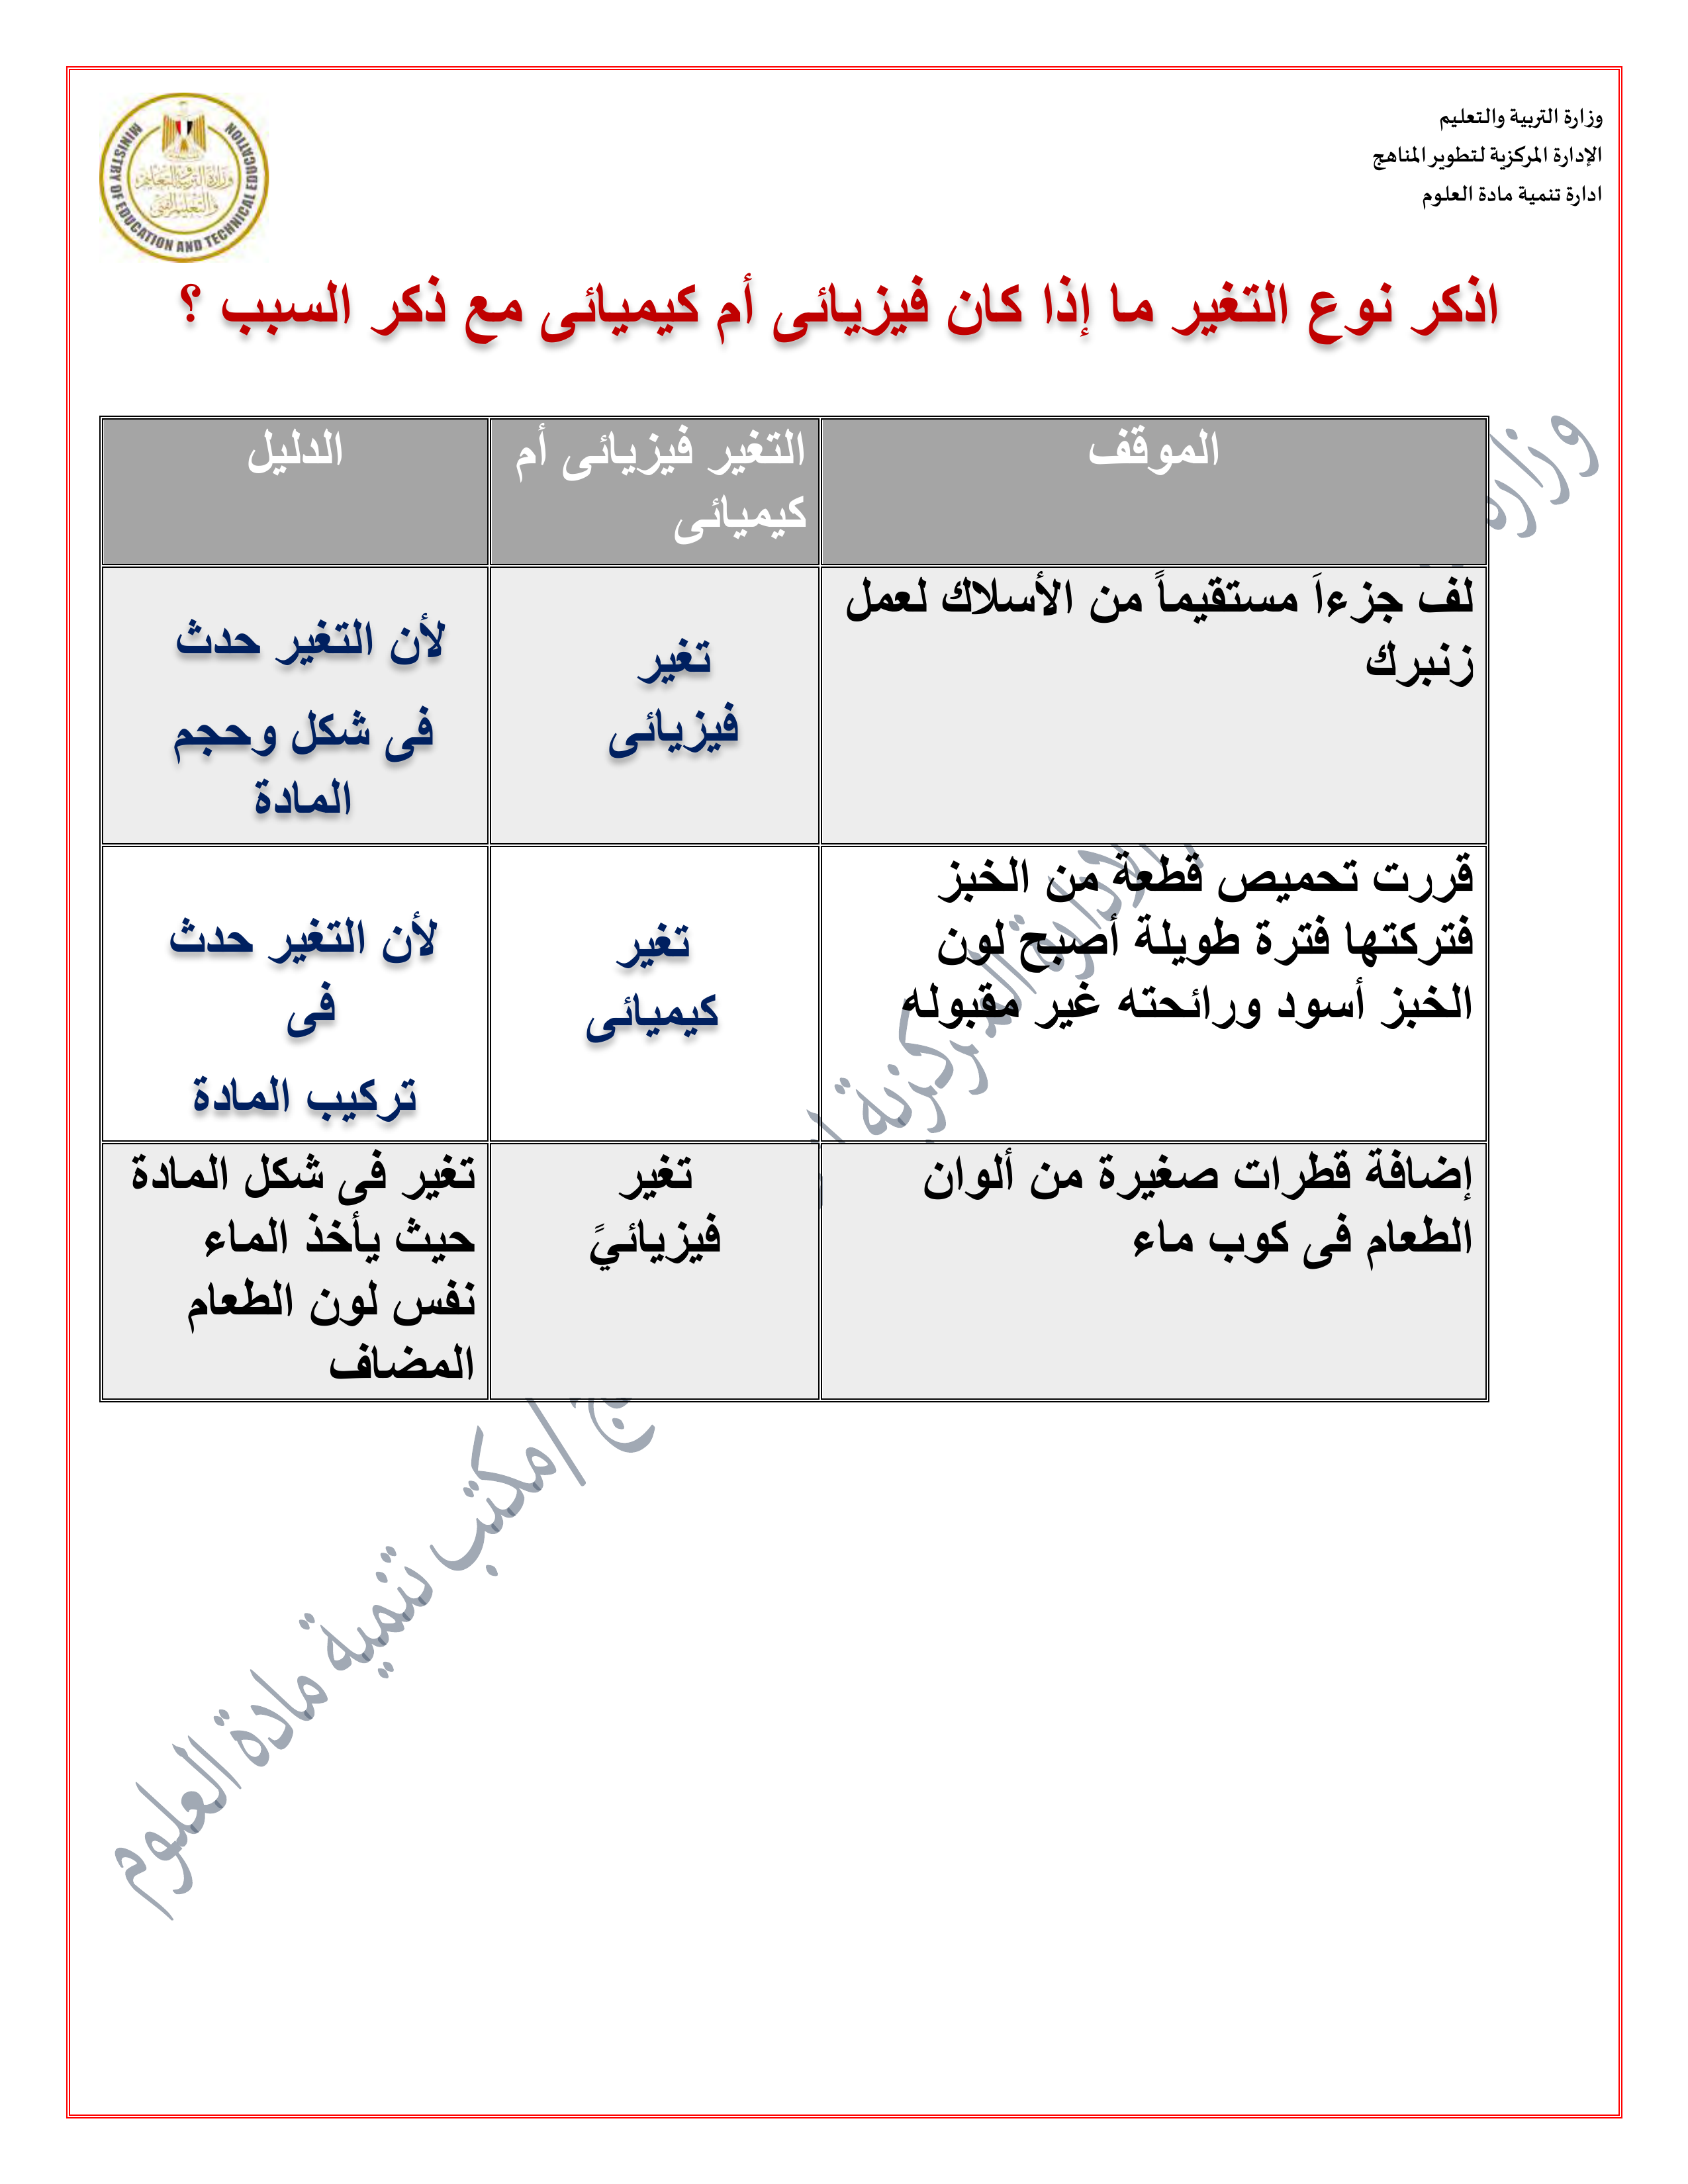 وزارة التربية والتعليم
الإدارة المركزية لتطوير المناهج
ادارة تنمية مادة العلوم
MINISTRY OF EDUCATION AND TECHNICAL EDUCATION
وزارة التربية والتعليم
والتعليم الفني
اذكر نوع التغير ما إذا كان فيزيائى أم كيميائى مع ذكر السبب ؟
الموقف
التغير فيزيائى أم
كيميائى
الدليل
لف جزءاَ مستقيماً من الأسلاك لعمل
زنبرك
تغير
فيزيائى
لأن التغير حدث
فى شكل وحجم
المادة
قررت تحميص قطعة من الخبز
فتركتها فترة طويلة أصبح لون
الخبز أسود ورائحته غير مقبوله
تغير
كيميائى
لأن التغير حدث
فى
تركيب المادة
إضافة قطرات صغيرة من ألوان
الطعام فى كوب ماء
تغير
فيزيائيً
تغير فى شكل المادة
حيث يأخذ الماء
نفس لون الطعام
المضاف
وزارة الإدارة المركزية ج/مكتب تنمية مادة العلوم